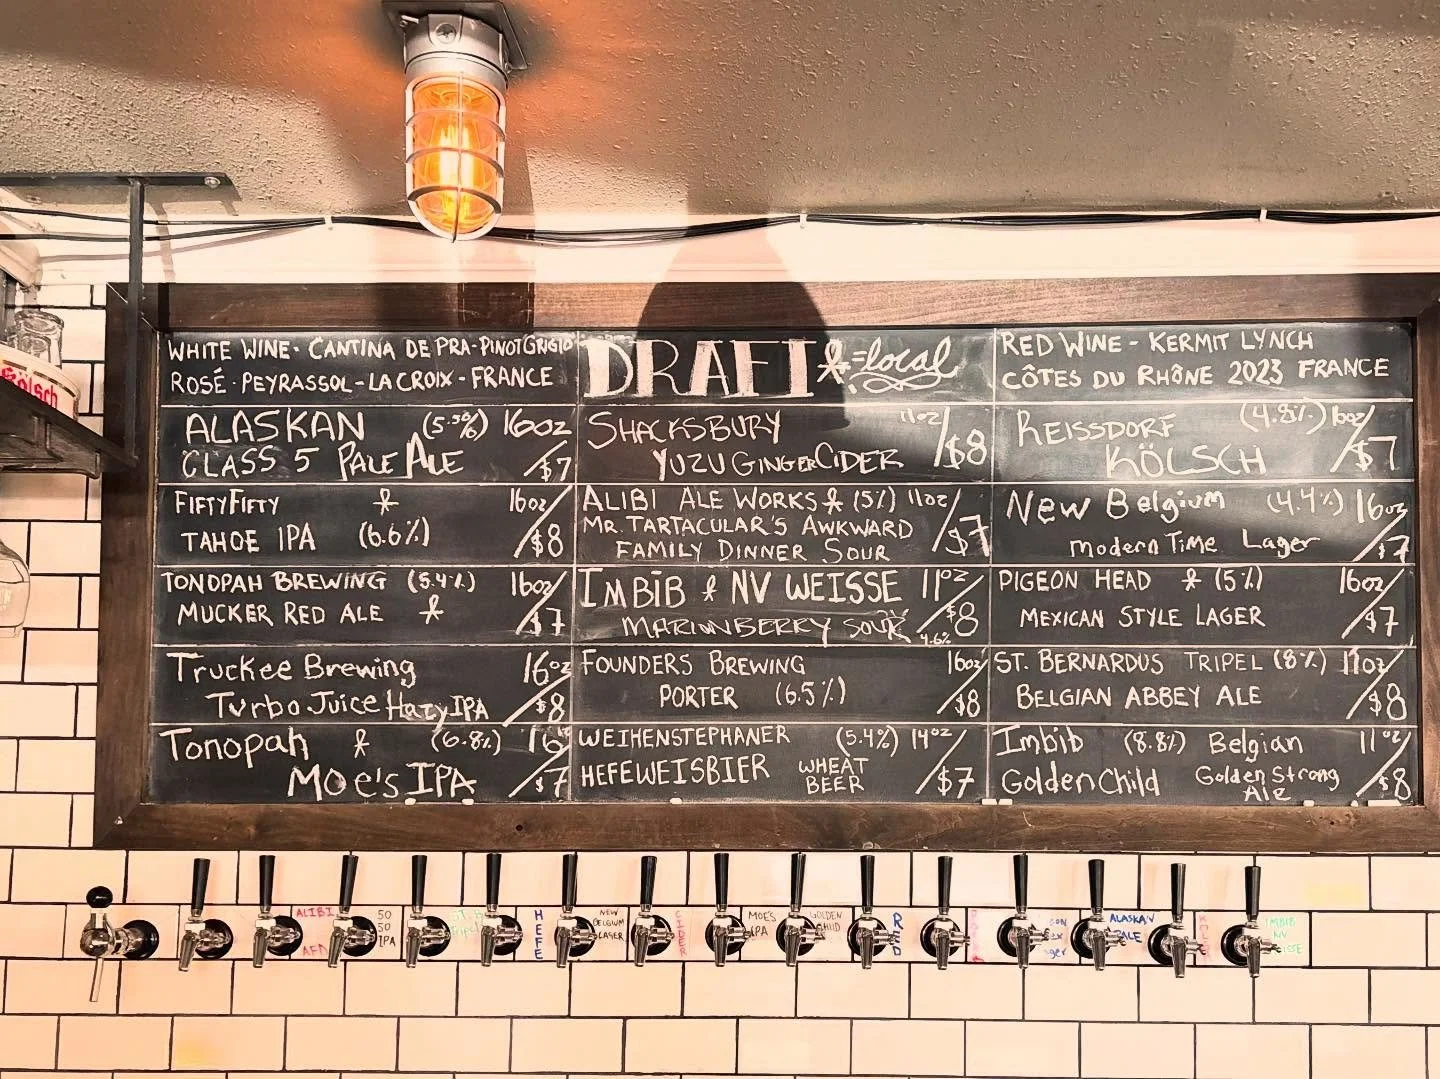 WHITE WINE - CANTINA DE PRA - PINOT GRIGIO
ROSÉ - PEYRASSOL - LA CROIX - FRANCE
ALASKAN (5.5%) 16oz
CLASS 5 PALE ALE /$7
FIFTYFIFTY 16oz/
TAHOE IPA (6.6%) $8
TONOPAH BREWING (5.4%) 16oz/
MUCKER RED ALE $7
Truckee Brewing 16oz
Turbo Juice Hazy IPA /$8
Tonopah (6.8%) 16
Moe's IPA /$7
DRAFT = local
SHACKSBURY 11oz/
YUZU GINGER CIDER $8
ALIBI ALE WORKS (5%) 11oz/
MR. TARTACULAR'S AWKWARD $7
FAMILY DINNER SOUR
IMBIB NV WEISSE 11oz/
MARIONBERRY SOUR $8
4.6%
FOUNDERS BREWING 16oz/
PORTER (6.5%) $8
WEIHENSTEPHANER (5.4%) 14oz/
HEFEWEISBIER WHEAT BEER $7
RED WINE - KERMIT LYNCH
CÔTES DU RHÔNE 2023 FRANCE
REISSDORF (4.8%) 16oz/
KÖLSCH $7
New Belgium (4.4%) 16oz
Modern Time Lager /$7
PIGEON HEAD (5%) 16oz/
MEXICAN STYLE LAGER $7
ST. BERNARDUS TRIPEL (8%) 11oz/
BELGIAN ABBEY ALE $8
Imbib (8.8%) Belgian 11oz/
Golden Child Golden Strong Ale $8
Kölsch
ALIBI
50
50
IPA
HEFE
NEW
BELGIUM
LAGER
CIDER
MOE'S
IPA
GOLDEN
CHILD
RED
ALASKAN
PALE
IMBIB
NV